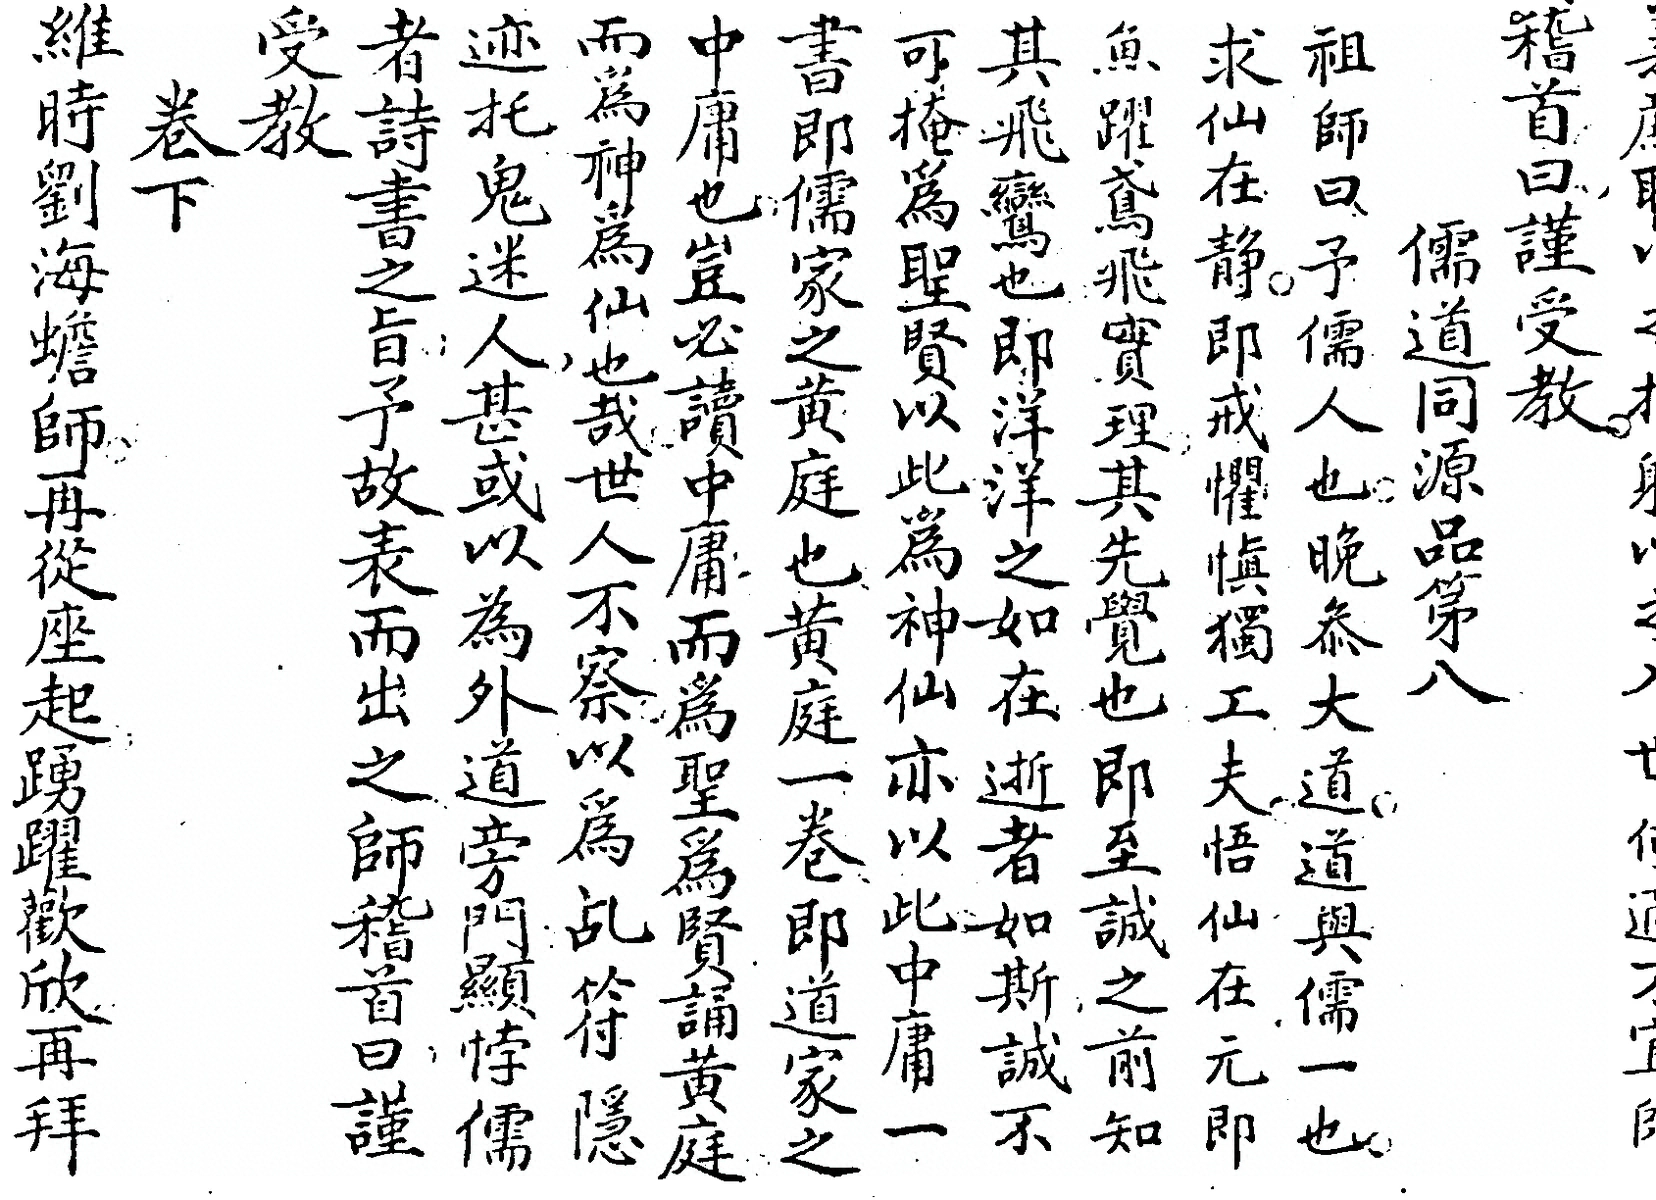 稽首曰謹受教
儒道同源品第八
祖師曰予儒人也晚叅大道道與儒一也
求仙在静即戒懼慎獨工夫悟仙在元即
魚躍鳶飛實理其先覺也即至誠之前知
其飛鸞也即洋洋之如在逝者如斯誠不
可掩為聖賢以此為神仙亦以此中庸一
書即儒家之黄庭也黄庭一卷即道家之
中庸也豈必讀中庸而為聖為賢誦黄庭
而為神為仙也哉世人不察以為乩符隱
迹托鬼迷人甚或以為外道旁門顯悖儒
者詩書之旨予故表而出之師稽首曰謹
受教
卷下
維時劉海蟾師再從座起踴躍歡欣再拜